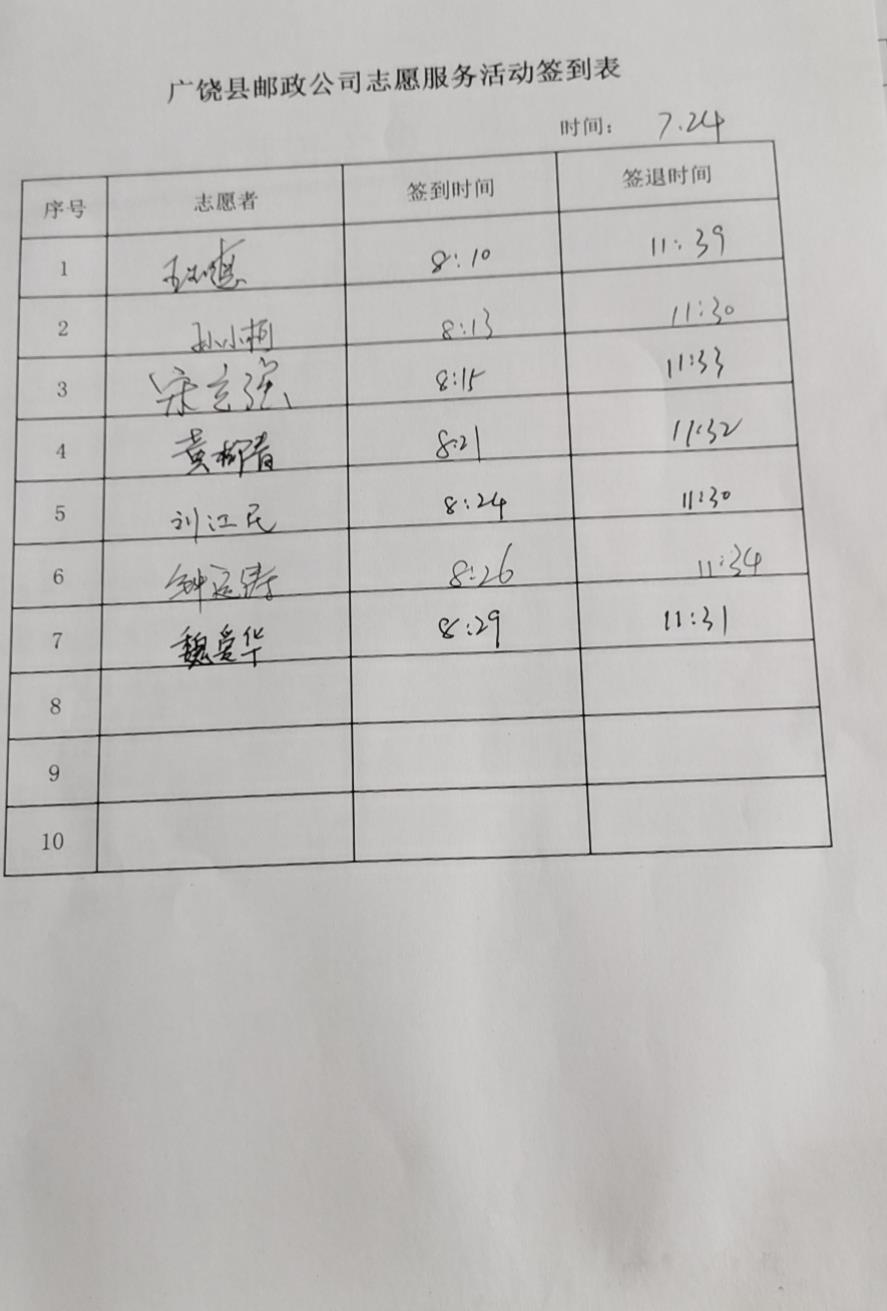 广饶县邮政公司志愿服务活动签到表
时间： 7.24
序号 志愿者 签到时间 签退时间
1 8:10 11:39
2 孙小桐 8:13 11:30
3 宋立强 8:15 11:33
4 黄柳青 8:21 11:32
5 刘江民 8:24 11:30
6 钟运涛 8:26 11:34
7 魏爱华 8:29 11:31
8
9
10